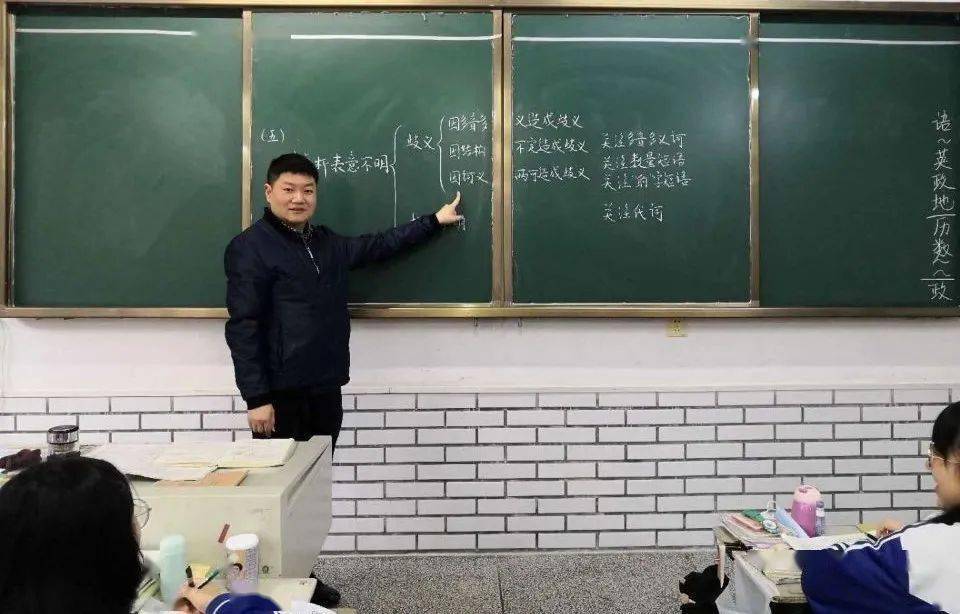 (五)
析表意不明
歧义
因多音多义造成歧义
因结构不定造成歧义
因词义两可造成歧义
明
关注多音多义词
关注数量短语
关注前字短语
关注代词
语~英政地历数~政